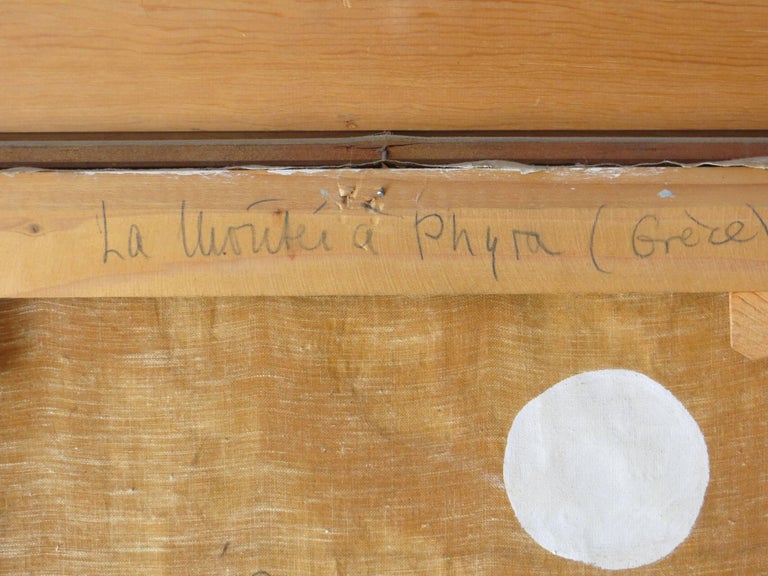 La Montée à Phyra (Grèce)